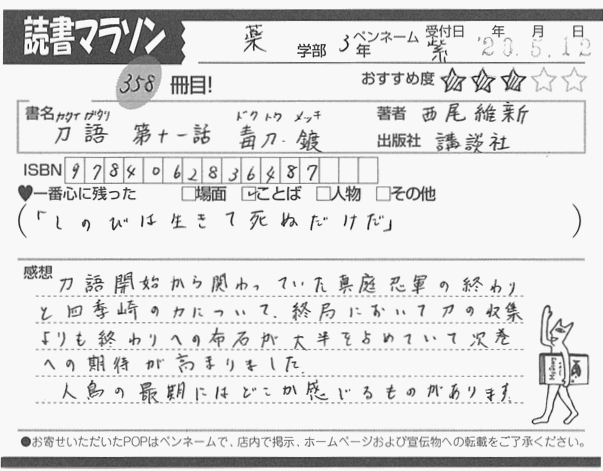 読書マラソン
薬 学部 3年 ペンネーム 紫 受付日 '20.5.12 年 月 日
358 冊目! おすすめ度 ★★★☆☆
書名 カタナガタリ ドクトウ メッキ 著者 西尾維新
刀語 第十一話 毒刀・鍍 出版社 講談社
ISBN 9784062836487
♥一番心に残った □場面 ☑ことば □人物 □その他
(「しのびは生きて死ぬだけだ」)
感想 刀語開始から関わっていた真庭忍軍の終わり
と四季崎の力について、終局において刀の収集
よりも終わりへの布石が大半を占めていて次巻
への期待が高まりました。
人鳥の最期にはどこか感じるものがあります。
●お寄せいただいたPOPはペンネームで、店内で掲示、ホームページおよび宣伝物への転載をご了承ください。